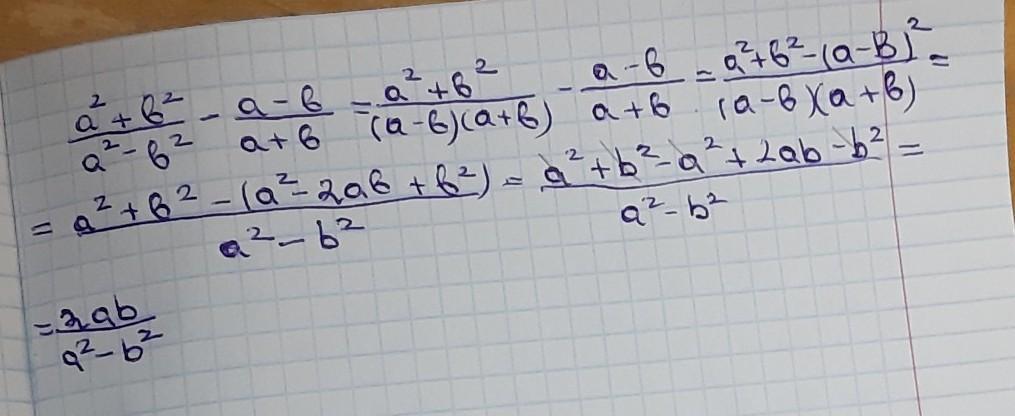 (a²+b²)/(a²-b²) - (a-b)/(a+b) = (a²+b²)/((a-b)(a+b)) - (a-b)/(a+b) = (a²+b²-(a-b)²)/((a-b)(a+b)) =
= (a²+b²-(a²-2ab+b²))/(a²-b²) = (a²+b²-a²+2ab-b²)/(a²-b²) =
= 2ab/(a²-b²)